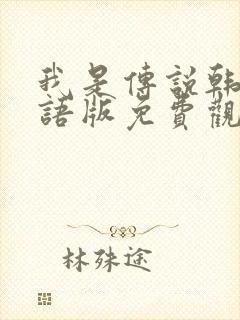 我是傳說韓
語版免費觀
林殊途